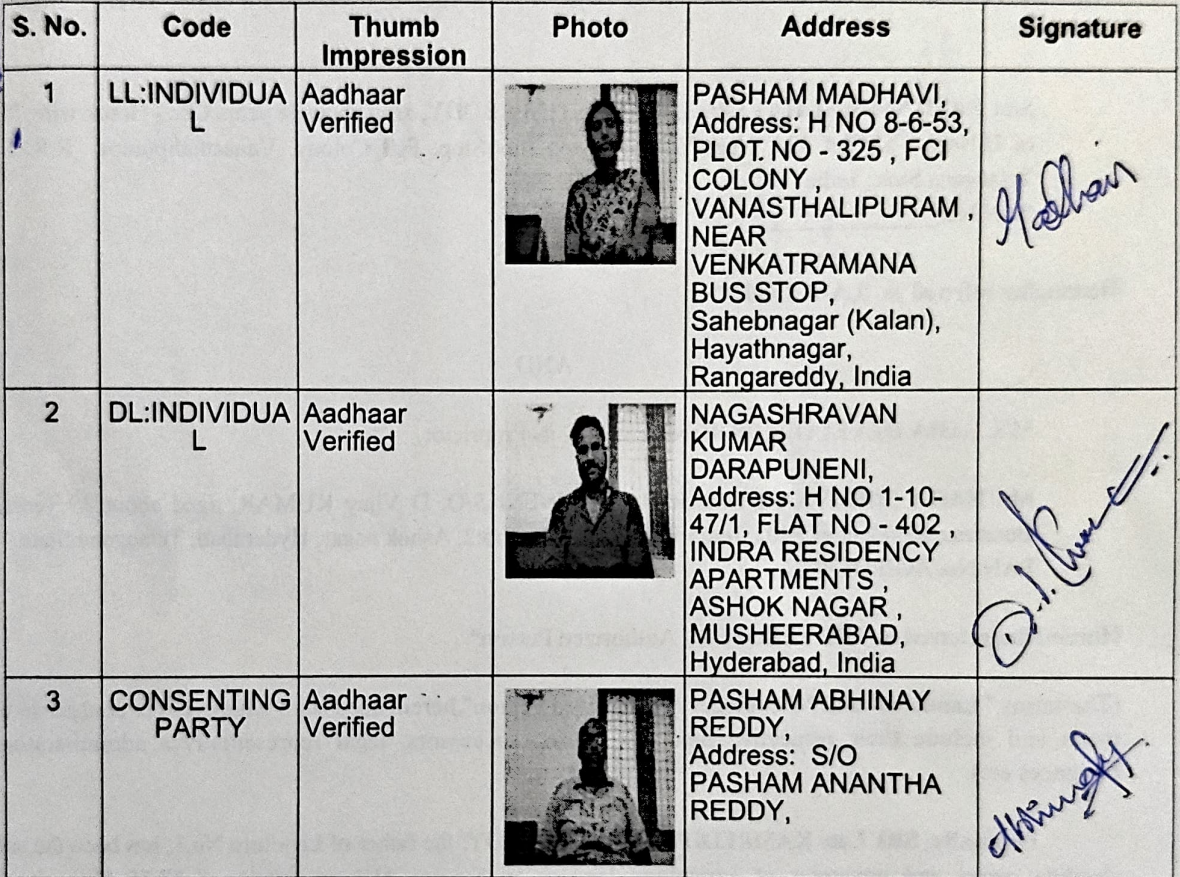 S. No. Code Thumb Impression Photo Address Signature
1 LL:INDIVIDUA L Aadhaar Verified
PASHAM MADHAVI,
Address: H NO 8-6-53,
PLOT. NO - 325 , FCI
COLONY ,
VANASTHALIPURAM ,
NEAR
VENKATRAMANA
BUS STOP,
Sahebnagar (Kalan),
Hayathnagar,
Rangareddy, India
2 DL:INDIVIDUA L Aadhaar Verified
NAGASHRAVAN
KUMAR
DARAPUNENI,
Address: H NO 1-10-
47/1, FLAT NO - 402 ,
INDRA RESIDENCY
APARTMENTS ,
ASHOK NAGAR ,
MUSHEERABAD,
Hyderabad, India
3 CONSENTING PARTY Aadhaar Verified
PASHAM ABHINAY
REDDY,
Address: S/O
PASHAM ANANTHA
REDDY,